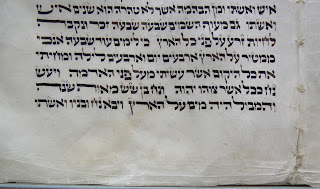 איש ואשתו ומן הבהמה אשר לא טהרה הוא שנים איש
ואשתו גם מעוף השמים שבעה שבעה זכר ונקבה
לחיות זרע על פני כל הארץ כי לימים עוד שבעה אנכי
ממטיר על הארץ ארבעים יום וארבעים לילה ומחיתי
את כל היקום אשר עשיתי מעל פני האדמה ויעש
נח ככל אשר צוהו יהוה ונח בן שש מאות שנה
והמבול היה מים על הארץ ויבא נח ובניו ואשתו